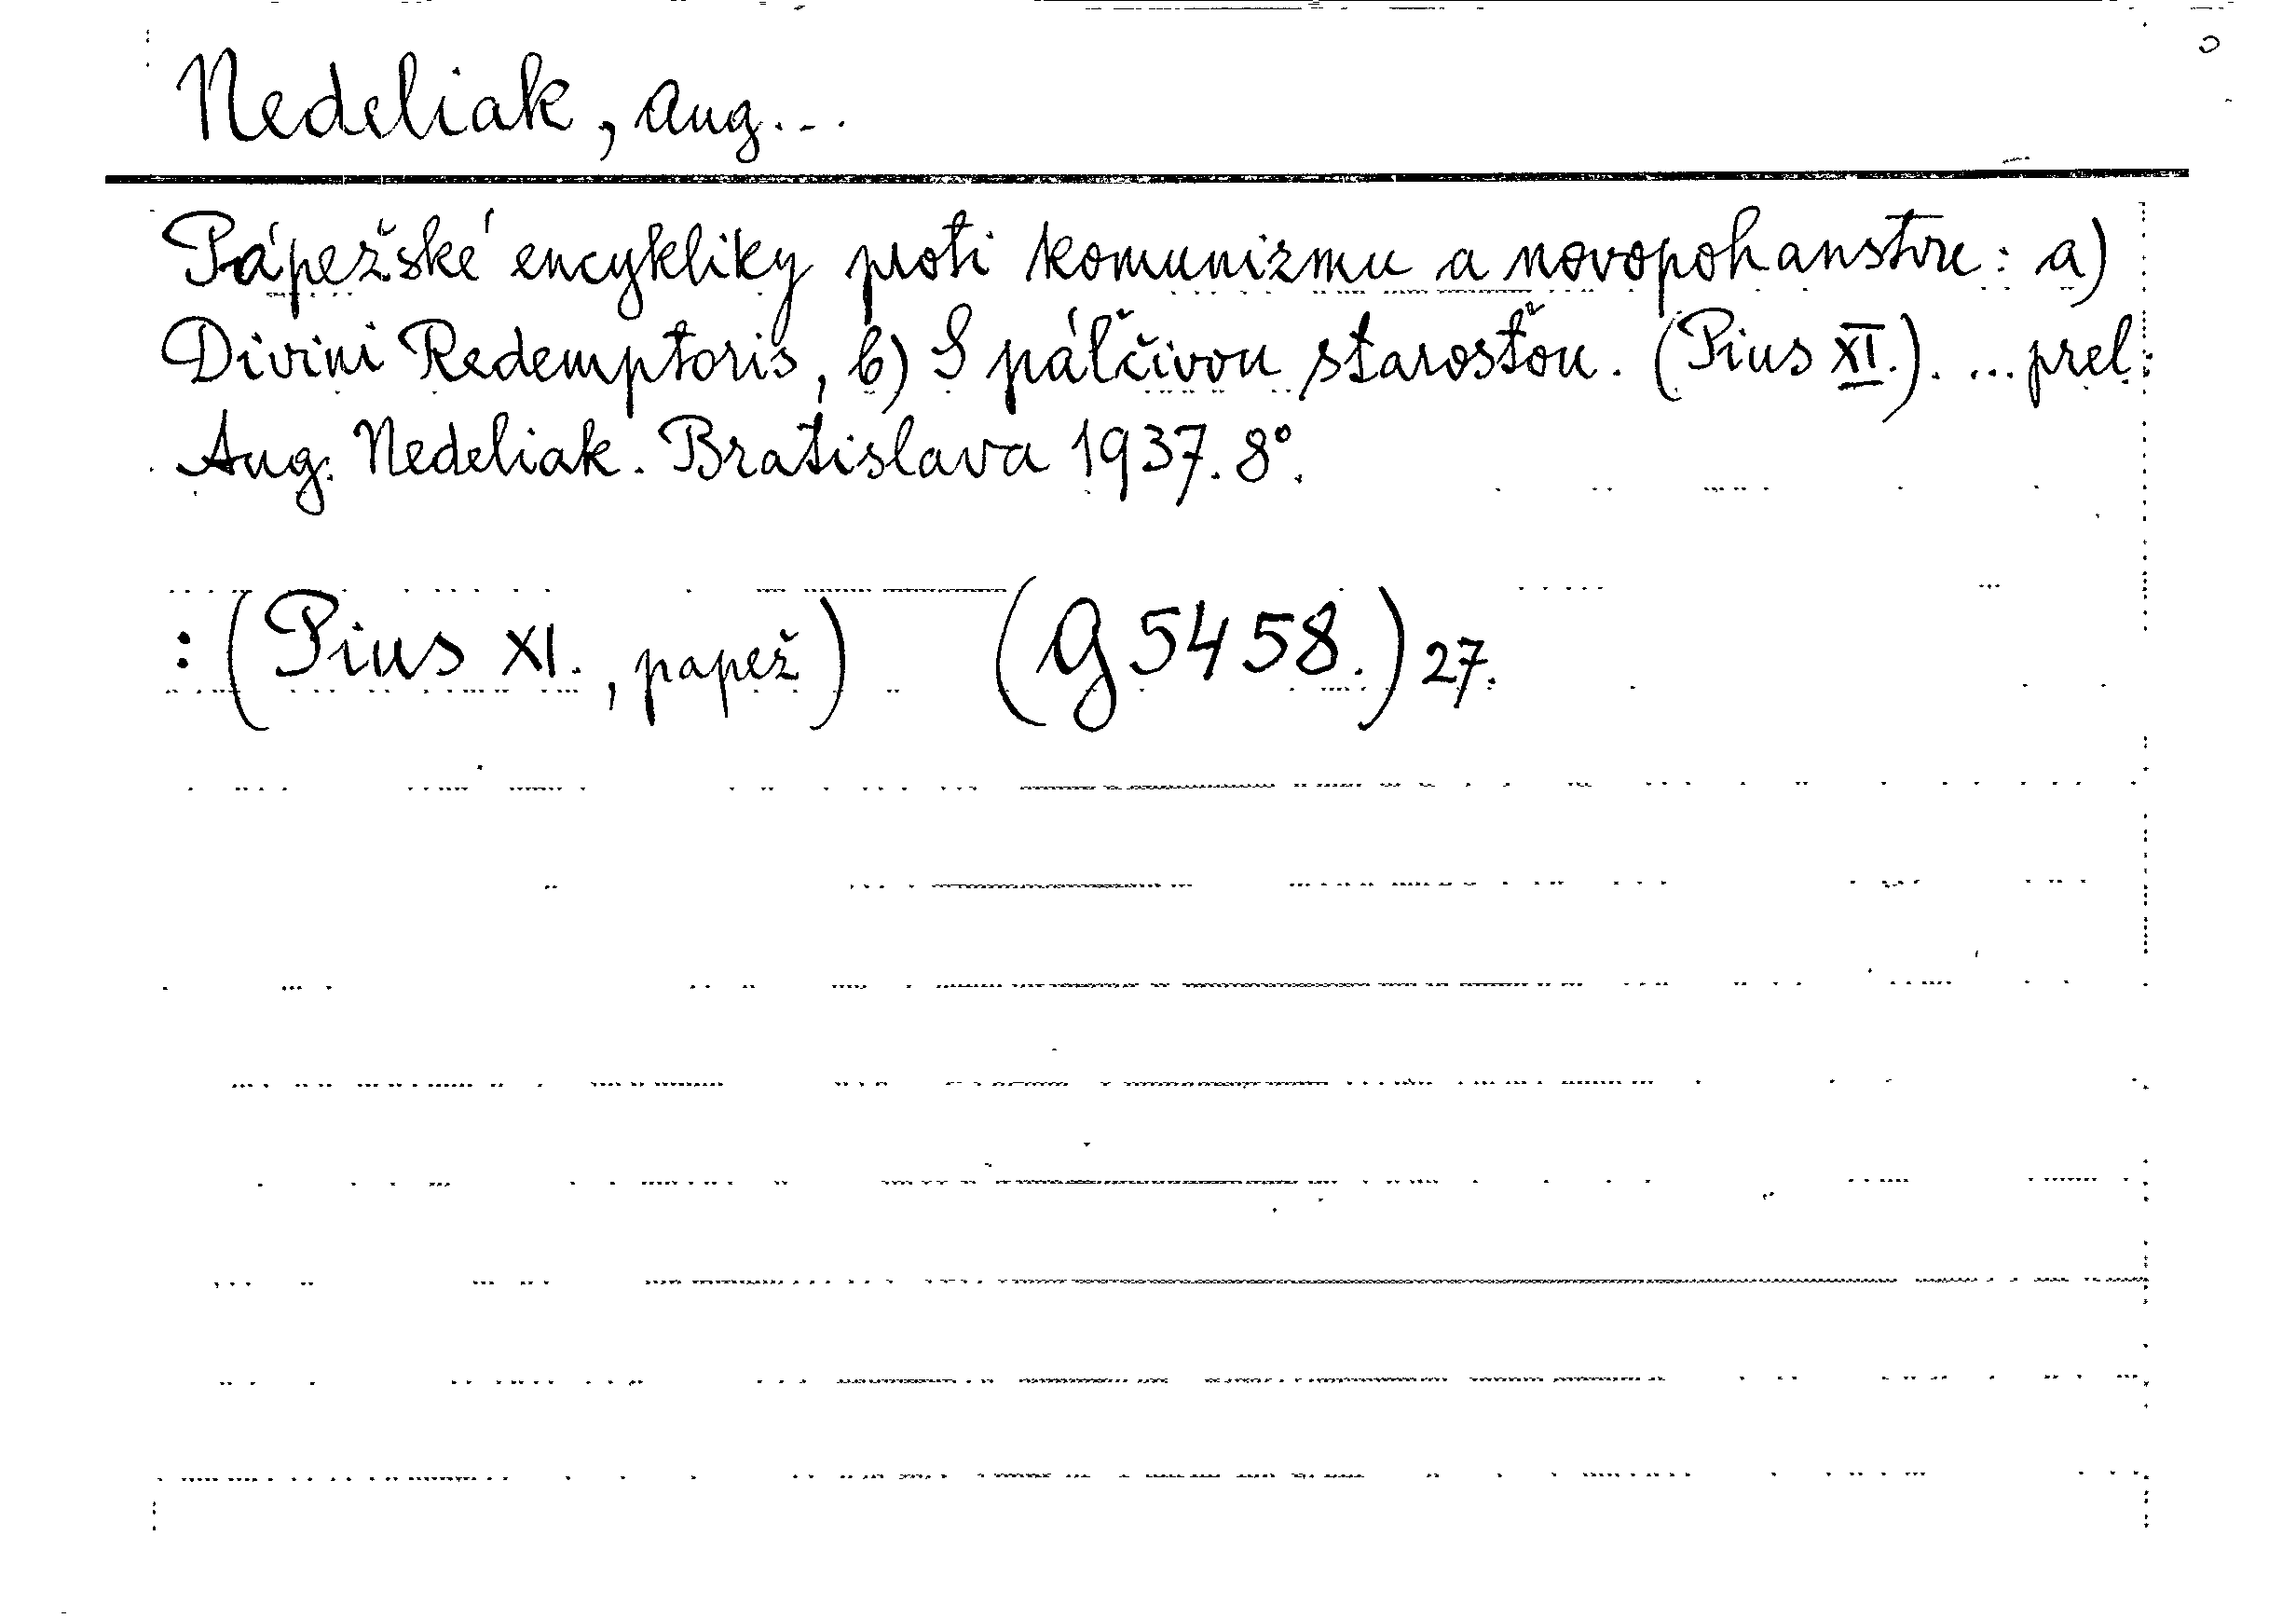 Nedeliak, Aug...
Pápežské encykliky proti komunizmu a novopohanstvu: a)
Divini Redemptoris, b) S pálčivou starosťou. (Pius XI.). ... prel.
Aug. Nedeliak. Bratislava 1937. 8°.
: (Pius XI., papež) (G 5458.) 27.